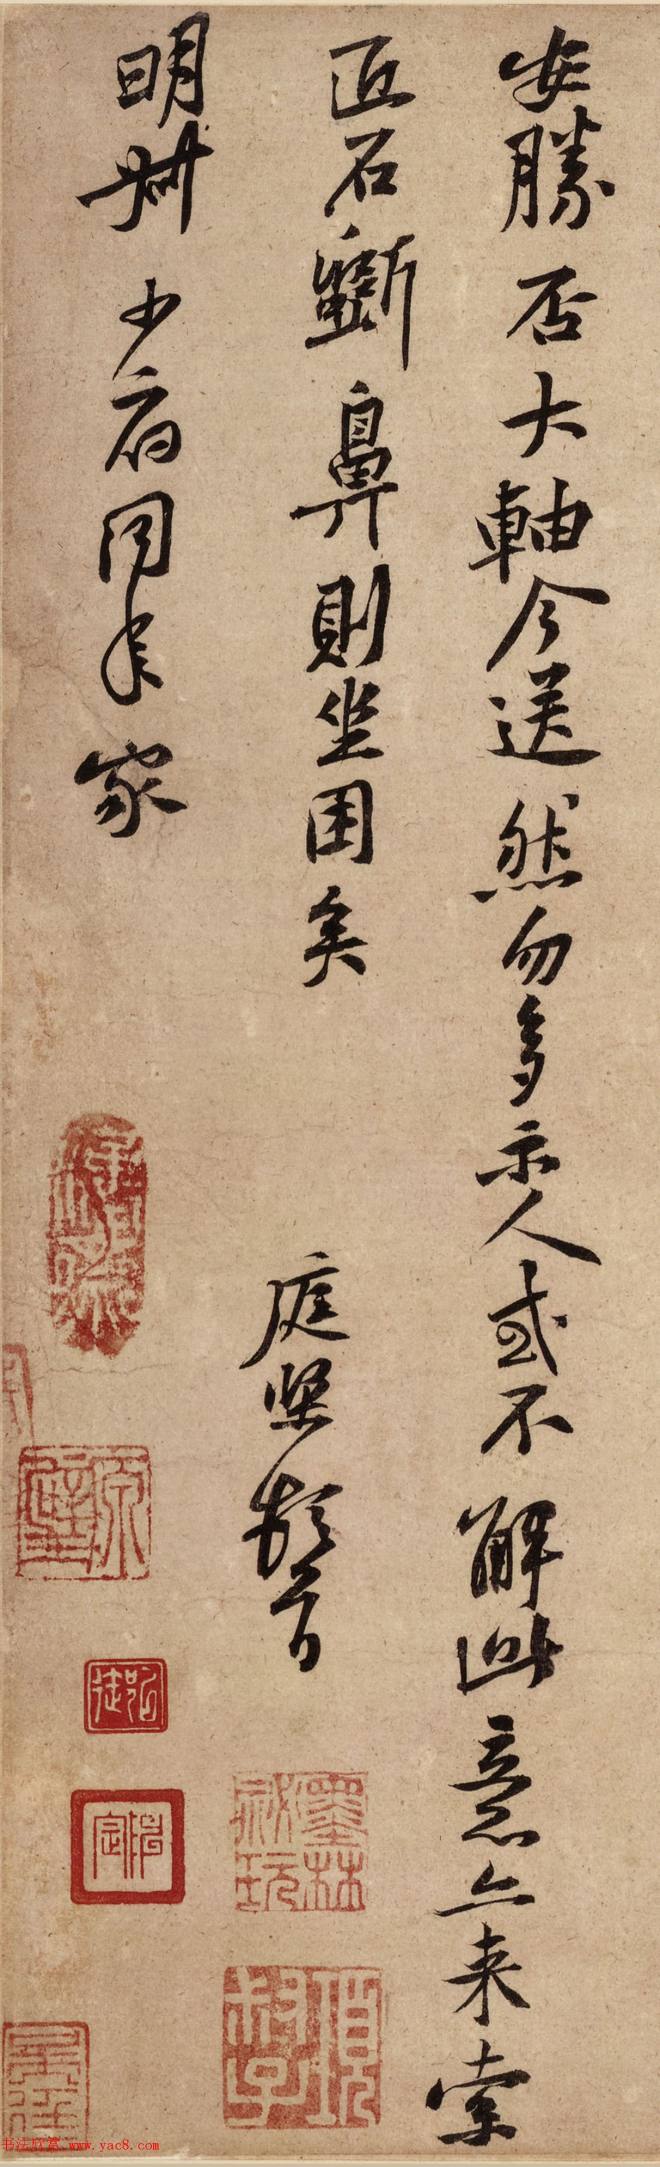 安勝否大軸今送然勿多示人或不解此意亦来索
匠石斲鼻則坐困矣
庭堅頓首
明叔少府同年家
墨林祕玩
項子京
弘
書法欣賞 www.yac8.com